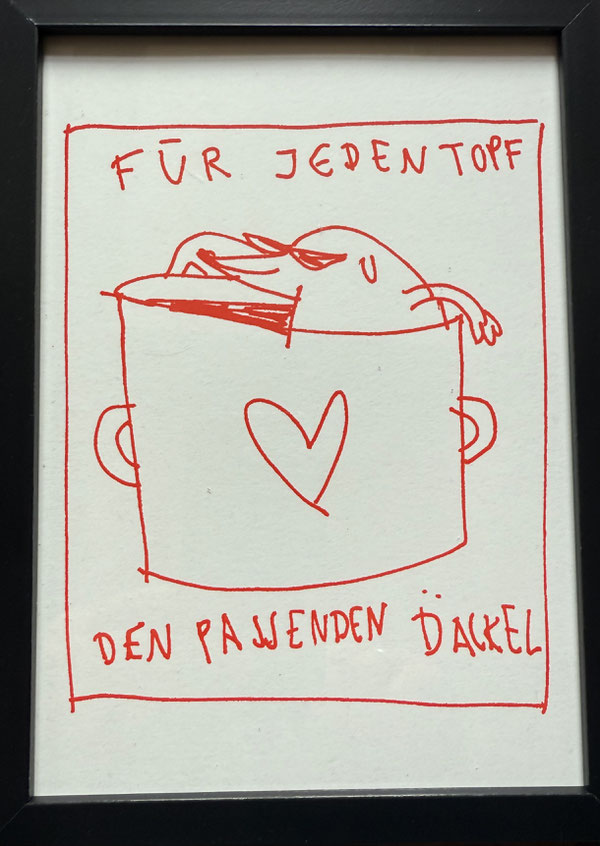 FÜR JEDEN TOPF
DEN PASSENDEN DÄCKEL